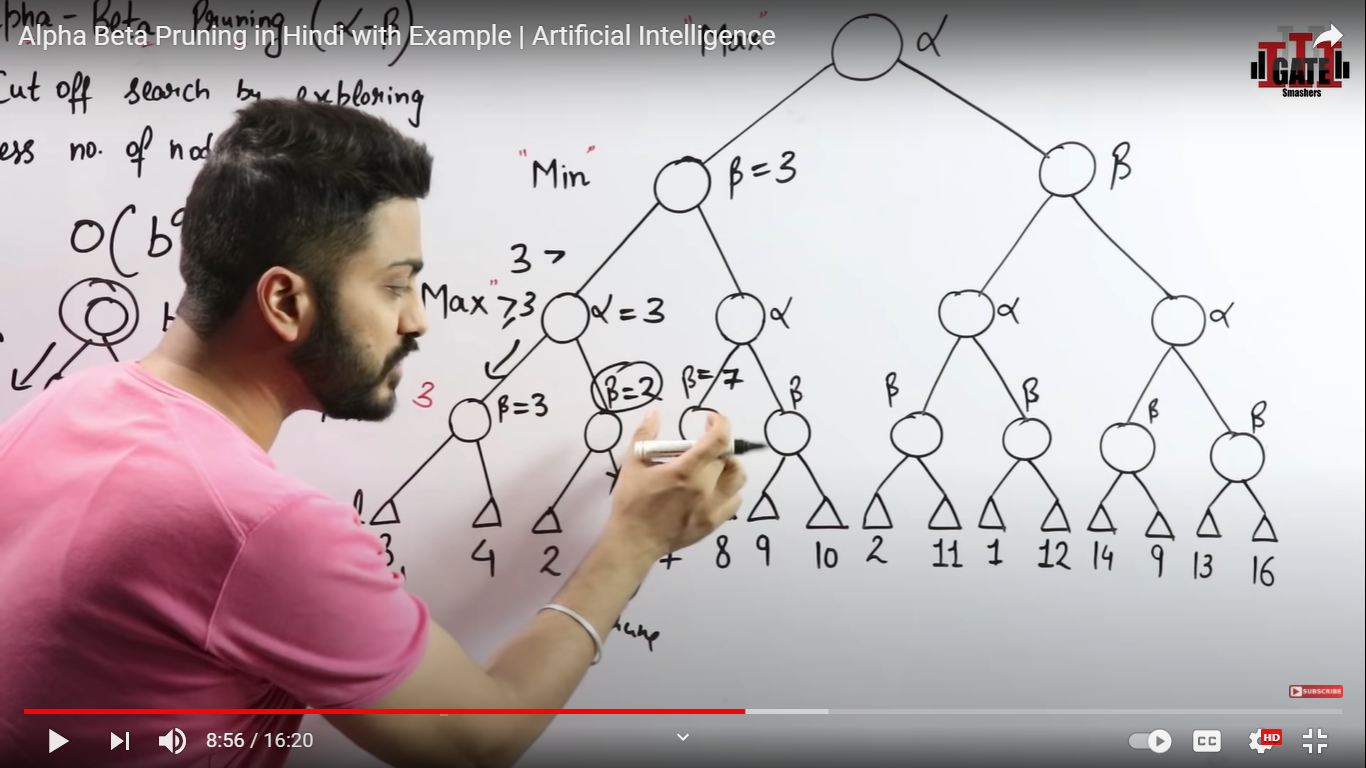 Alpha Beta Pruning in Hindi with Example | Artificial Intelligence
"Max" α
GATE
Smashers
Cut off search by exploring
no. of
"Min" β = 3 β
O(b
3 >
Max" ≥3 α = 3 α α α
3 β=3 β=2 β=7 β β β β β
3 4 2 7 8 9 10 2 11 1 12 14 9 13 16
SUBSCRIBE
8:56 / 16:20 CC HD